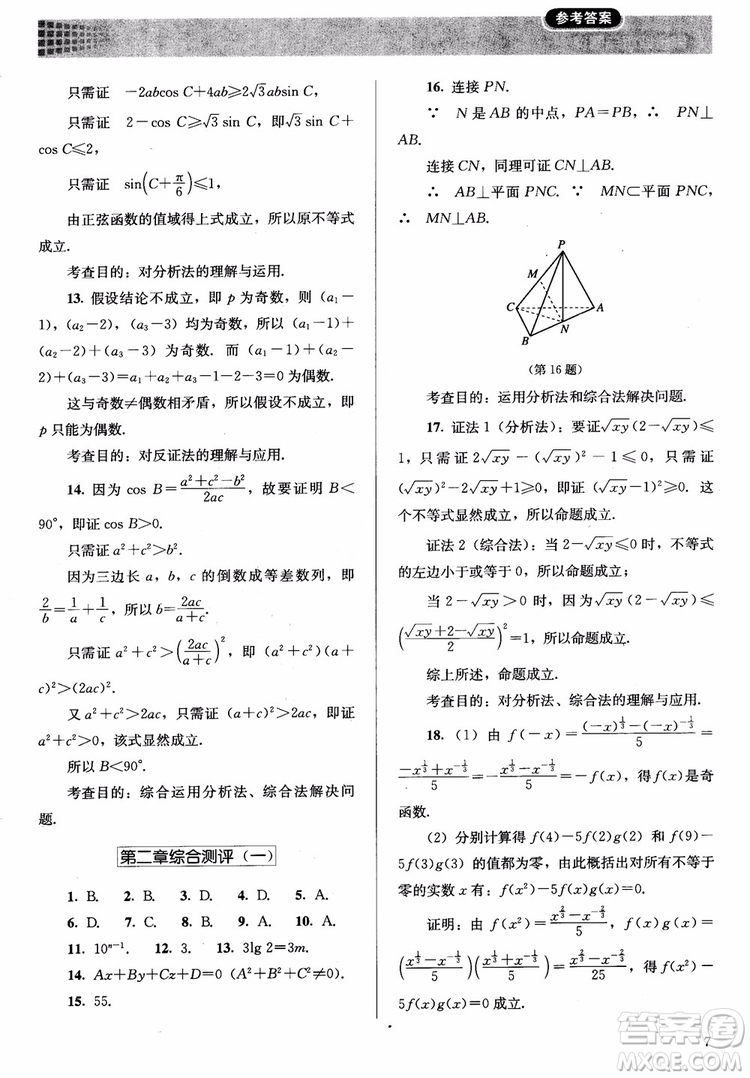 参考答案
只需证 −2abcos C+4ab⩾2√3absin C,
只需证 2−cos C⩾√3 sin C, 即√3 sin C+
cos C⩽2,
只需证 sin(C+π/6)⩽1,
由正弦函数的值域得上式成立, 所以原不等式
成立.
考查目的: 对分析法的理解与运用.
13. 假设结论不成立, 即 p 为奇数, 则 (a₁−
1), (a₂−2), (a₃−3) 均为奇数, 所以 (a₁−1)+
(a₂−2)+(a₃−3) 为奇数. 而 (a₁−1)+(a₂−
2)+(a₃−3)=a₁+a₂+a₃−1−2−3=0为偶数.
这与奇数≠偶数相矛盾, 所以假设不成立, 即
p 只能为偶数.
考查目的: 对反证法的理解与应用.
14. 因为 cos B=(a²+c²−b²)/2ac, 故要证明 B<
90°, 即证 cos B>0.
只需证 a²+c²>b².
因为三边长 a, b, c 的倒数成等差数列, 即
2/b=1/a+1/c, 所以 b=2ac/(a+c).
只需证 a²+c²>(2ac/(a+c))², 即 (a²+c²)(a+
c)²>(2ac)².
又 a²+c²>2ac, 只需证 (a+c)²>2ac, 即证
a²+c²>0, 该式显然成立.
所以 B<90°.
考查目的: 综合运用分析法、综合法解决问
题.
第二章综合测评(一)
1. B. 2. B. 3. D. 4. D. 5. A.
6. D. 7. C. 8. B. 9. A. 10. A.
11. 10ⁿ⁻¹. 12. 3. 13. 3lg 2=3m.
14. Ax+By+Cz+D=0 (A²+B²+C²≠0).
15. 55.
16. 连接 PN.
∵ N 是 AB 的中点, PA=PB, ∴ PN⊥
AB.
连接 CN, 同理可证 CN⊥AB.
∴ AB⊥平面 PNC. ∵ MN⊂平面 PNC,
∴ MN⊥AB.
P
M
C
A
N
B
(第 16 题)
考查目的: 运用分析法和综合法解决问题.
17. 证法 1 (分析法): 要证√xy(2−√xy)⩽
1, 只需证 2√xy−(√xy)²−1⩽0, 只需证
(√xy)²−2√xy+1⩾0, 即证 (√xy−1)²⩾0. 这
个不等式显然成立, 所以命题成立.
证法 2 (综合法): 当 2−√xy⩽0 时, 不等式
的左边小于或等于零, 命题成立.
当 2−√xy>0 时, 因为√xy(2−√xy)⩽
((√xy+2−√xy)/2)²=1, 所以命题成立.
综上所述, 命题成立.
考查目的: 对分析法、综合法的理解与应用.
18. (1) 由 f(−x)=((−x)^(1/3)−(−x)^(−1/3))/5=
(−x^(1/3)+x^(−1/3))/5=−(x^(1/3)−x^(−1/3))/5=−f(x), 得 f(x) 是奇
函数.
(2) 分别计算得 f(4)−5f(2)g(2) 和 f(9)−
5f(3)g(3) 的值都为零, 由此概括出对所有不等于
零的实数 x 有: f(x²)−5f(x)g(x)=0.
证明: 由 f(x²)=(x^(2/3)−x^(−2/3))/5, 5f(x)g(x)=5
((x^(1/3)−x^(−1/3))/5)((x^(1/3)+x^(−1/3))/5)=5·(x^(2/3)−x^(−2/3))/25, 得 f(x²)−
5f(x)g(x)=0 成立.
7
答案圈
MXQE.COM